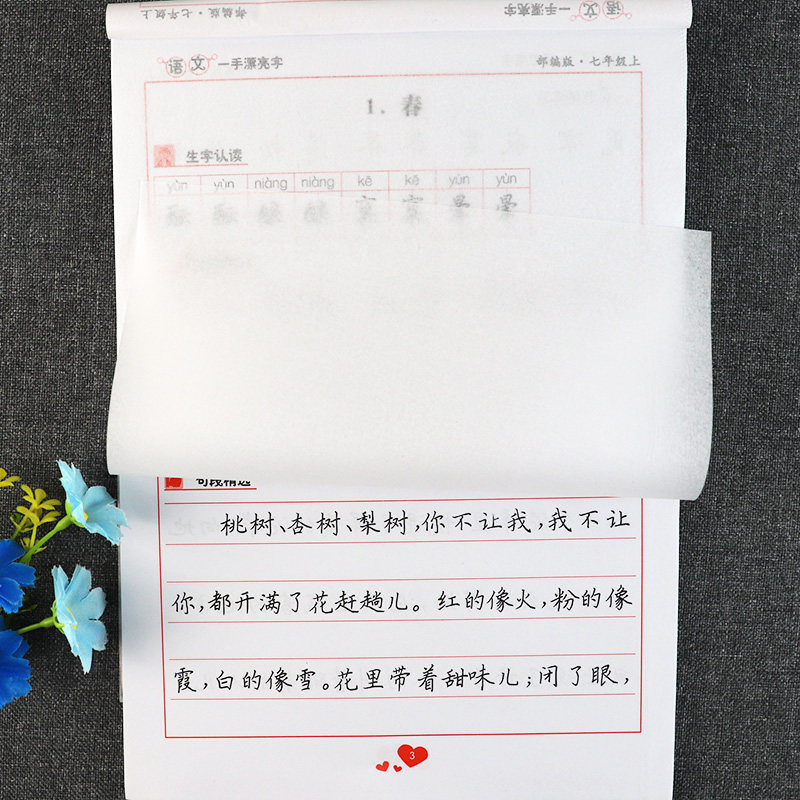 部编版·七年级上 一手漂亮字 语文
语文 一手漂亮字 部编版·七年级上
1. 春
生字认读
yùn yùn niàng niàng kē kē yùn yùn
酝 酝 酿 酿 窠 窠 晕 晕
句段精选
桃树、杏树、梨树,你不让我,我不让
你,都开满了花赶趟儿。红的像火,粉的像
霞,白的像雪。花里带着甜味儿;闭了眼,
3